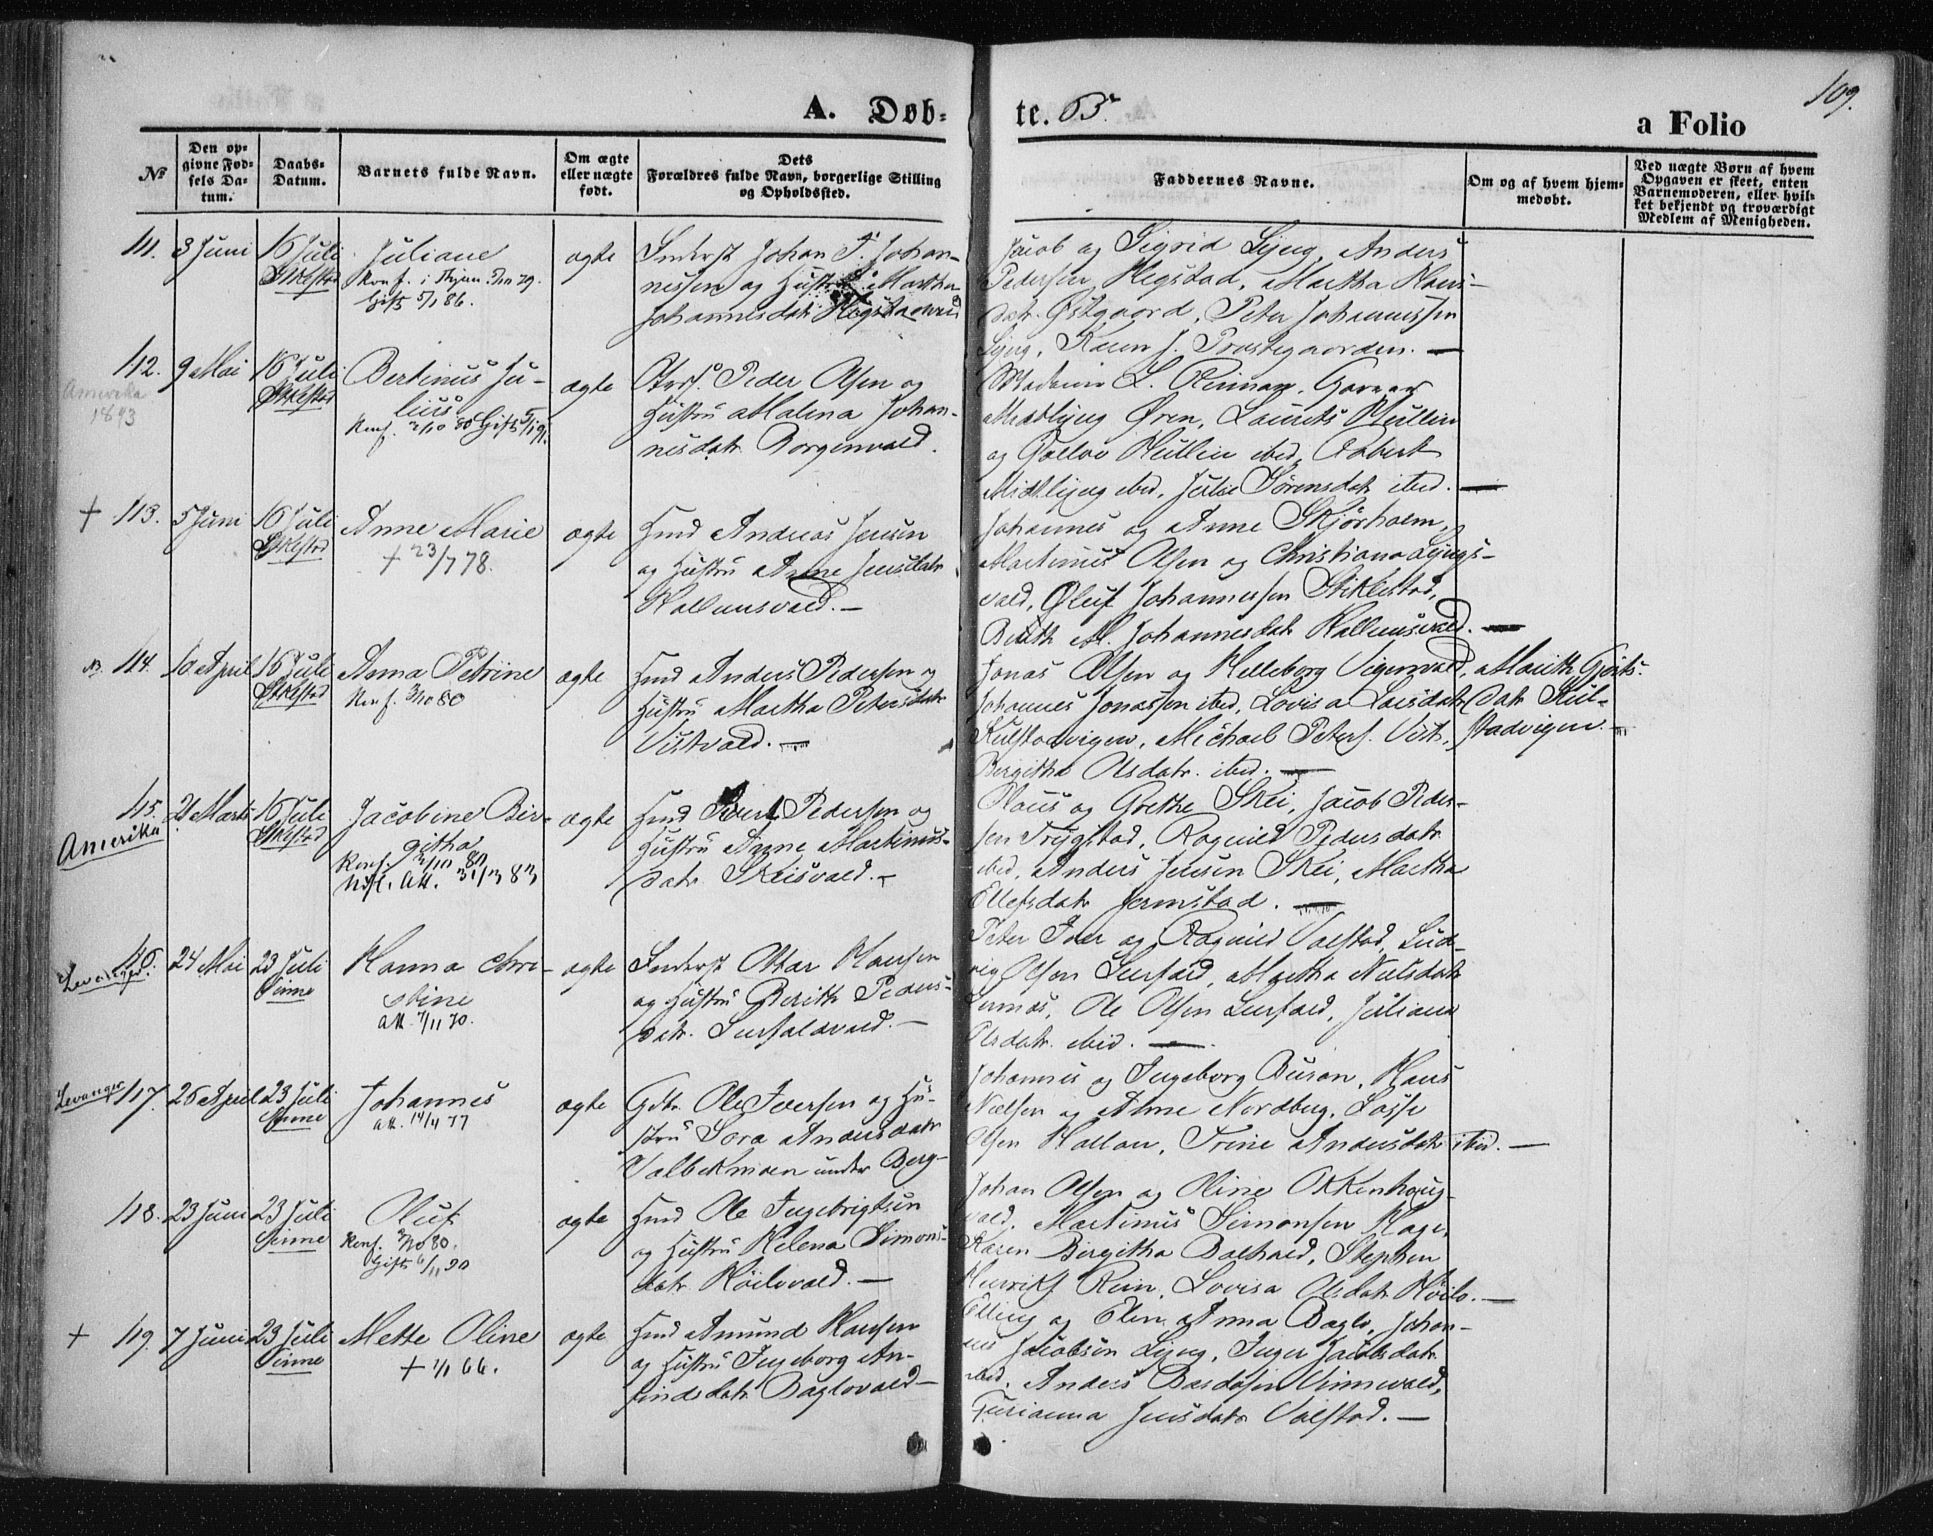 109.
A. Døb-
te. 65.
a Folio
№
Den op-
givne Fød-
sels Da-
tum.
Daabs-
Datum.
Barnets fulde Navn.
Om ægte
eller uægte
født.
Dets
Forældres fulde Navn, borgerlige Stilling
og Opholdssted.
Faddernes Navne.
Om og af hvem hjem-
medøbt.
Ved uægte Børn af hvem
Opgaven er skeet, enten
Barnemoderen, eller hvil-
ket bekjendt og troværdigt
Medlem af Menigheden.
111. 3 Juni 16 Juli
Stklstad
Juliane
Konf. i Thjem 79.
Gift 5/1 86.
ægte
Inderst Johan P. Johan-
nessen og Hustru Martha
Johannesdatr
Jacob og Sigrid Ljeng, Anders
Pedersen Hegstad, Martha Hans-
datr. Østgaard, Peter Johannessen
Ljeng, Karen J. Prostegaarden. —
112. 9 Mai 16 Juli
Stklstad
Amerika
1893
Bertinus Ju-
lius
Konf. 3/10 80 Gift 91.
ægte
Peder Olsen og
Hustru Malina Johan-
nesdatr Borgenvald.
Madame L.
Øren, Laurits Mullin
og Mullin ibid, Robert
Midtljeng ibid, Julie Sørensdatr ibid. —
+ 113. 5 Juni 16 Juli
Stklstad
Anne Marie
+ 23/7 78.
ægte
Husmd Andreas Jensen
og Hustru Anne Jensdatr
Hallemsvald. —
Johannes og Anne Skjørholm,
Martinus Olsen og Christiana Ljengs-
vald, Oluf Johannesen Stiklestad,
Berith M. Johannesdatr Hallemsvald. —
114. 10 April 16 Juli
Stklstad
Anna Petrine
Konf. 3/10 80
ægte
Husmd Anders Pedersen og
Hustru Martha Petersdatr
Vistvald. —
Jonas Olsen og Helleborg Vigenvald, Marith Gjerts-
Johannes Jonassen ibid, Lovisa Larsdatr datr Kul-
Kulstadvigen, Michael Peters. Vist, stadvigen. —
Bergitha Olsdatr. ibid. —
115. 21 Marts 16 Juli
Stklstad
Amerika
Jacobine Bir-
githa
Konf. 3/10 80
Utfl. Att. 31/3 83
ægte
Husmd Pedersen og
Hustru Anne Martinus-
datr Skeisvald. —
Claus og Grethe Skei, Jacob Peder-
sen Trygstad, Ragnild Pedersdatr
ibid, Anders Jensen Skei, Martha
Ellefsdatr Jermstad. —
116. 24 Mai 23 Juli
Vinne
Levanger.
Hanna Chri-
stine
att. 7/11 70.
ægte
Inderst Ottar Hansen
og Hustru Berith Peders-
datr. Leirfaldvald. —
Peter Iver og Ragnild Valstad, Lud-
vig Olsen Leirfald, Martha Nielsdatr
Lernæs, Ole Olsen Leirfald, Juliana
Olsdatr. ibid. —
Levanger 117. 26 April 23 Juli
Vinne
Johannes
att. 14/4 77
ægte
Gdbr. Ole Iversen og Hu-
stru Sara Andersdatr
Valbekmoen under Berg-
Johannes og Ingeborg Buran, Hans
Nielsen og Anne Nordberg, Lasse
Olsen Hallan, Trine Andersdatr ibid. —
118. 23 Juni 23 Juli
Vinne
Oluf
Konf. 3/10 80.
Gift 6/11 90
ægte
Husmd Ole Ingebrigtsen
og Hustru Helena Simons-
datr Høilovald. —
Johan Olsen og Oline Okkenhaug-
vald, Martinus Simonsen Hage,
Karen Birgitha Balhald, Stephen
Henriks. Rein, Lovisa Olsdatr Høilo. —
+ 119. 7 Juni 23 Juli
Vinne
Mette Oline
+ 1/1 66.
ægte
Husmd Amund Hansen
og Hustru Ingeborg An-
findsdatr Baglovald —
Elling og Elen Anna Baglo, Johan-
nes Jacobsen Ljeng, Inger Jacobsdatr
ibid, Anders Bardosen Vinnevald,
Gurianna Jensdatr Valstad. —